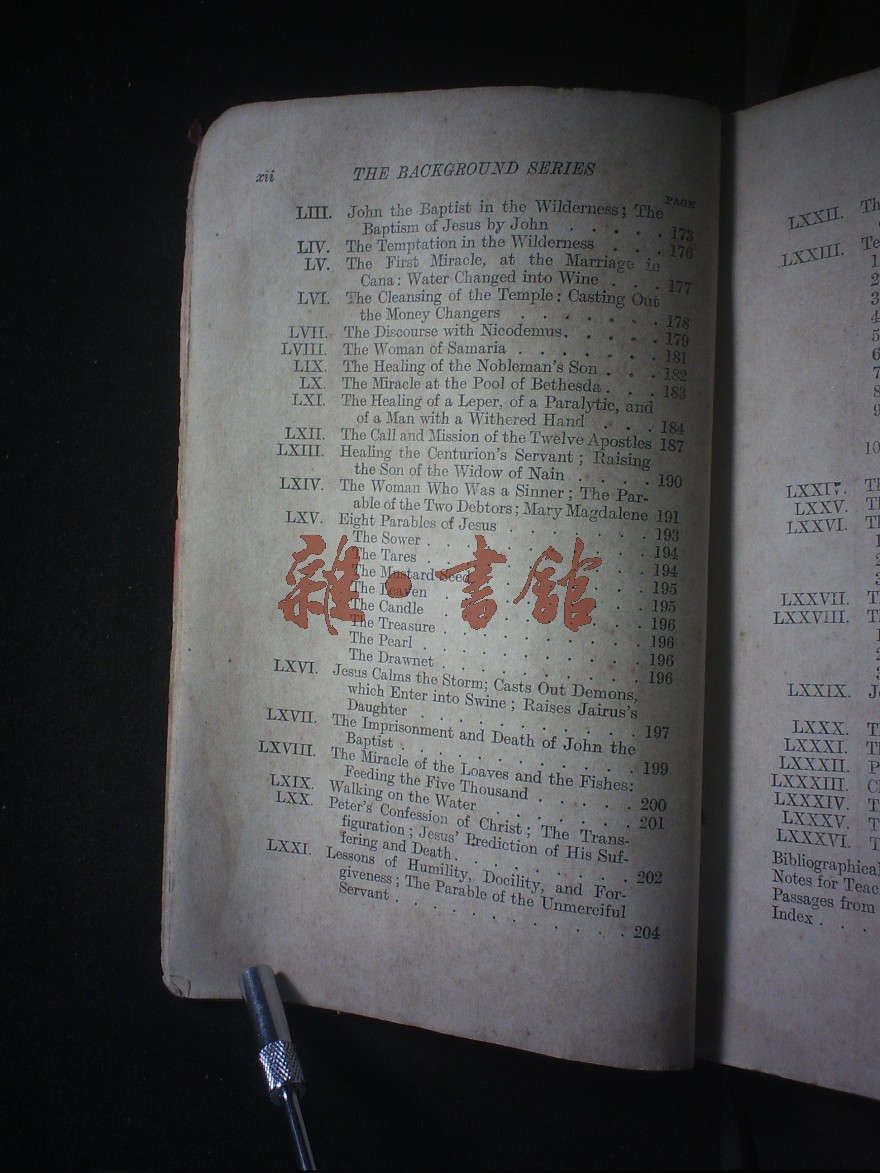 xii THE BACKGROUND SERIES
PAGE
LIII. John the Baptist in the Wilderness; The
Baptism of Jesus by John . . . . . 173
LIV. The Temptation in the Wilderness . . . 176
LV. The First Miracle, at the Marriage in
Cana: Water Changed into Wine . . . 177
LVI. The Cleansing of the Temple: Casting Out
the Money Changers . . . . . . . 178
LVII. The Discourse with Nicodemus. . . . . 179
LVIII. The Woman of Samaria . . . . . . . 181
LIX. The Healing of the Nobleman's Son . . . 182
LX. The Miracle at the Pool of Bethesda . . . 183
LXI. The Healing of a Leper, of a Paralytic, and
of a Man with a Withered Hand . . . 184
LXII. The Call and Mission of the Twelve Apostles 187
LXIII. Healing the Centurion's Servant; Raising
the Son of the Widow of Nain . . . . 190
LXIV. The Woman Who Was a Sinner; The Par-
able of the Two Debtors; Mary Magdalene 191
LXV. Eight Parables of Jesus . . . . . . . 193
The Sower . . . . . . . . . . 194
The Tares . . . . . . . . . . 194
The Mustard Seed . . . . . . . 195
The Leaven . . . . . . . . . 195
The Candle . . . . . . . . . 196
The Treasure . . . . . . . . . 196
The Pearl . . . . . . . . . . 196
The Drawnet . . . . . . . . . 196
LXVI. Jesus Calms the Storm; Casts Out Demons,
which Enter into Swine; Raises Jairus's
Daughter . . . . . . . . . . 197
LXVII. The Imprisonment and Death of John the
Baptist . . . . . . . . . . . 199
LXVIII. The Miracle of the Loaves and the Fishes:
Feeding the Five Thousand . . . . . 200
LXIX. Walking on the Water . . . . . . . 201
LXX. Peter's Confession of Christ; The Trans-
figuration; Jesus' Prediction of His Suf-
fering and Death. . . . . . . . . 202
LXXI. Lessons of Humility, Docility, and For-
giveness; The Parable of the Unmerciful
Servant . . . . . . . . . . . 204
雜·書館
LXXII. Th
LXXIII. Te
1
2
3
4
5
6
7
8
9
10
LXXIV. Th
LXXV. Th
LXXVI. Th
1
2
3
LXXVII. Th
LXXVIII. Th
1
2
3
LXXIX. Je
LXXX. Th
LXXXI. Th
LXXXII. P
LXXXIII. Cl
LXXXIV. T
LXXXV. T
LXXXVI. T
Bibliographical
Notes for Teac
Passages from
Index . . .